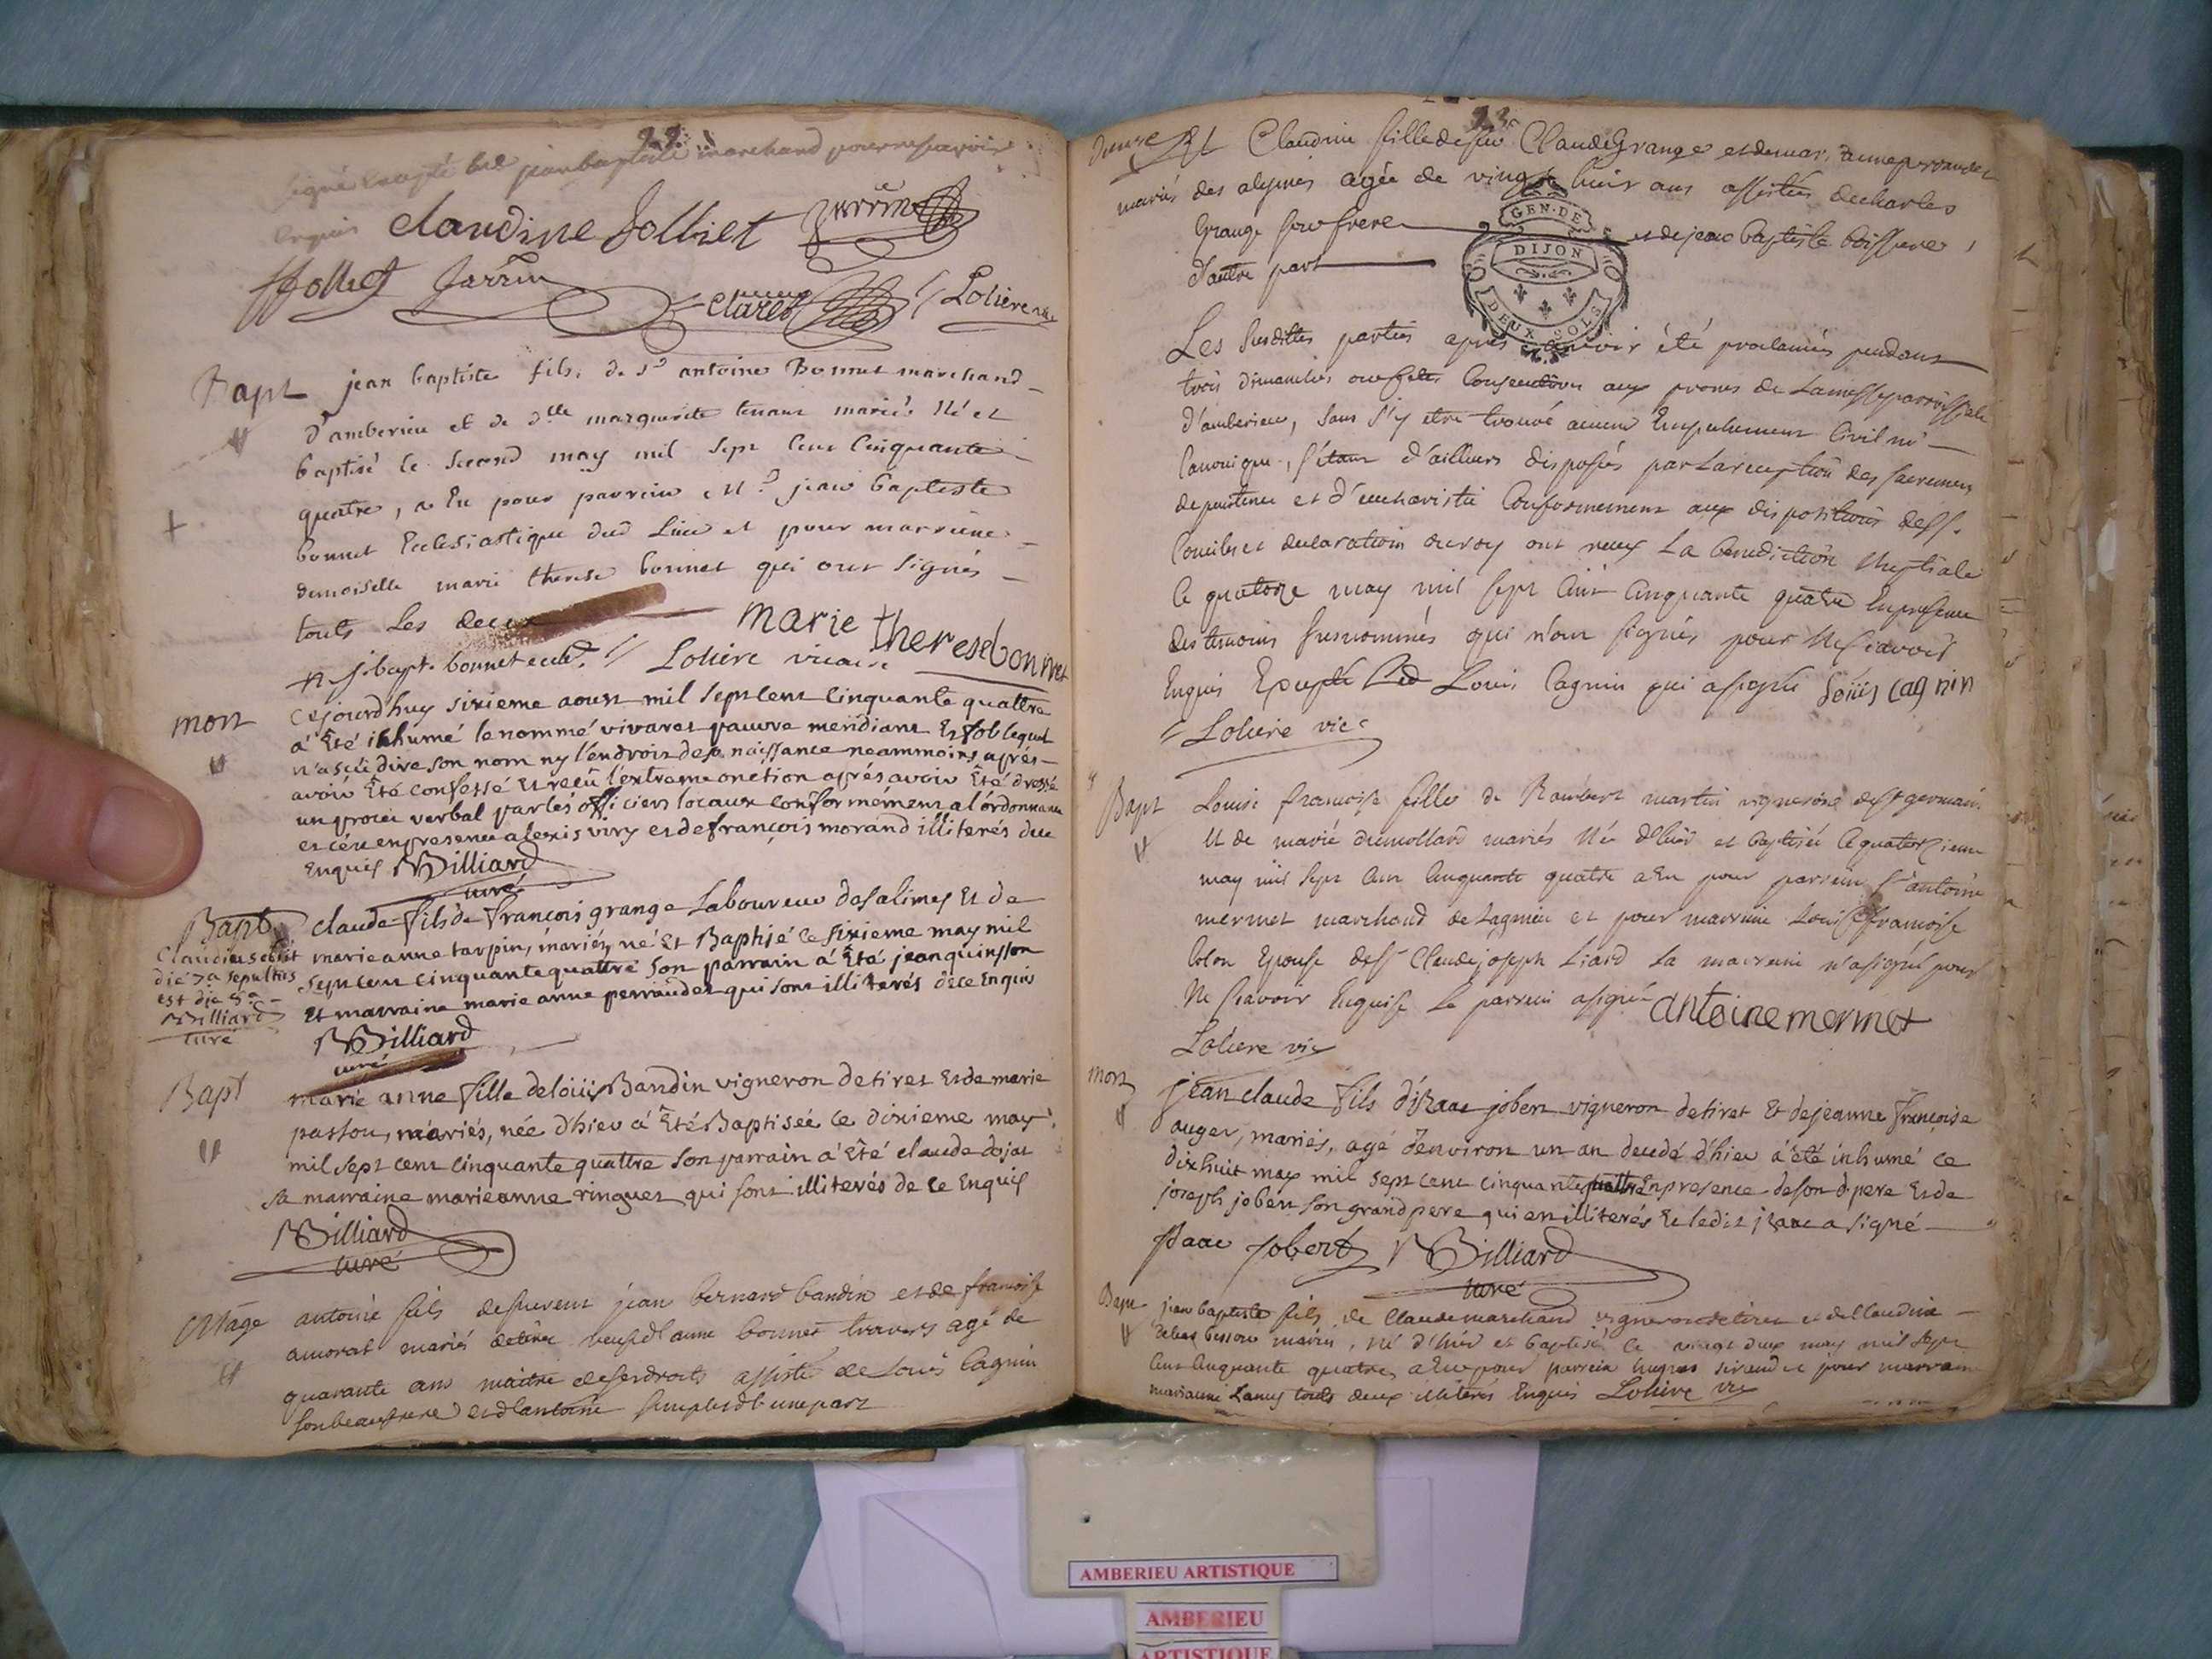 22.
signé excepté led jean baptiste marchand pour ne sçavoir
enquis claudine Jolliet Jarrin
Jollict Jarrin Claret Loliere vic
Bapt jean baptiste fils de Sr antoine Bonnet marchand
d'amberieu et de dlle marguerite tenant mariés né et
baptisé le second may mil sept cent cinquante
quatre, a eu pour parrein Mre jean baptiste
bonnet Ecclesiastique dud lieu et pour marreine
demoiselle marie therese bonnet qui ont signés
touts les deux marie therese bonnet
j. bapt. bonnet eccl. Loliere vicaire
mort cejourd'huy sixieme aoust mil sept cent cinquante quattre
à êté inhumé le nommé vivaret pauvre mendiant Esf lequel
n'a sçû dire son nom ny l'endroit de sa naissance neammoins aprés
avoir êté confessé et reçû l'extreme onction aprés avoir êté dressé
un procu verbal par les officiers locaux conformément a l'ordonnance
et ce en presence alexis viry et de françois morand illiterés de ce
enquis Billiard
curé
Bapt claude fils de françois grange Laboureur des alimes et de
marie anne tarpin, mariéz, né et Baptisé ce sixieme may mil
sept cent cinquante quattre son parrain à êté jean quinsson
et marraine marie anne perraudet qui sont illiterés de ce enquis
Claudius
die 7a sepultus
est die 8a
Billiard
curé
Billiard
curé
Bapt marie anne fille de loüis Bandin vigneron de tiret et de marie
passou, mariés, née d'hier à êté Baptisée ce dixieme may
mil sept cent cinquante quattre son parrain à êté claude dojat
sa marraine marie anne ringuet qui sont illiterés de ce enquis
Billiard
curé
antoine fils de furent jean bernard bandin et de francoise
amorat mariés de tiret veuf d'anne bonnet travers agé de
quarante ans maitre de ses droits assisté de Louis Cagnin
son beaufrere et d'antoine d'une part
23.
Et Claudine fille de feu Claude Grange et de mar. anne perraudet
mariés des alymes agée de vingt huit ans assistée de charles
Grange son frere et de jean baptiste
d'autre part
GEN. DE
DIJON
DEUX SOLS
Les susdittes parties apres avoir été proclamées pendant
trois dimanches ou fetes consecutives aux prones de la messe paroissiale
d'amberieu, sans s'y etre trouvé aucun Empechement Civil ni
Canonique, s'étant d'ailleurs disposés par la reception des sacremens
de penitence et d'eucharistie Conformement aux dispositions des ss.
Conciles et declaration du roy ont reçeu la benediction Nuptiale
le quatorze may mil sept cent cinquante quatre En presence
des temoins susnommés qui n'ont signés pour ne sçavoir
Enquis Excepté led Louis Cagnin qui a signé Loüis cagnin
Loliere vic
Bapt Louise francoise fille de Rambert martin vigneron de st germain
et de marie dumollard mariés née d'hier et baptisée le quatorzieme
may mil sept cent cinquante quatre a eu pour parrein sr antoine
mermet marchand de Lagnieu et pour marreine Louise francoise
Colon Epouse de sr Claude joseph Liard la marreine n'a signé pour
ne sçavoir Enquise le parrein a signé antoine mermet
Loliere vic
mort jean claude fils d'izaac jobert vigneron de tiret et de jeanne françoise
auger, mariés, agé d'environ un an decedé d'hier à été inhumé ce
dix huit may mil sept cent cinquante quattre en presence de son d. pere et de
joseph jobert son grand pere qui en illiterés et ledit izaac a signé
Isaac Jobert Billiard
curé
Bapt jean baptiste fils de Claude marchand vigneron de tiret et de Claudine
besson mariés, né d'hier et baptisé le vingt deux may mil sept
cent cinquante quatre, a eu pour parrein hugues sirand et pour marraine
mariane Lamy touts deux illiterés Enquis Loliere vic
AMBERIEU ARTISTIQUE
AMBERIEU
ARTISTIQUE